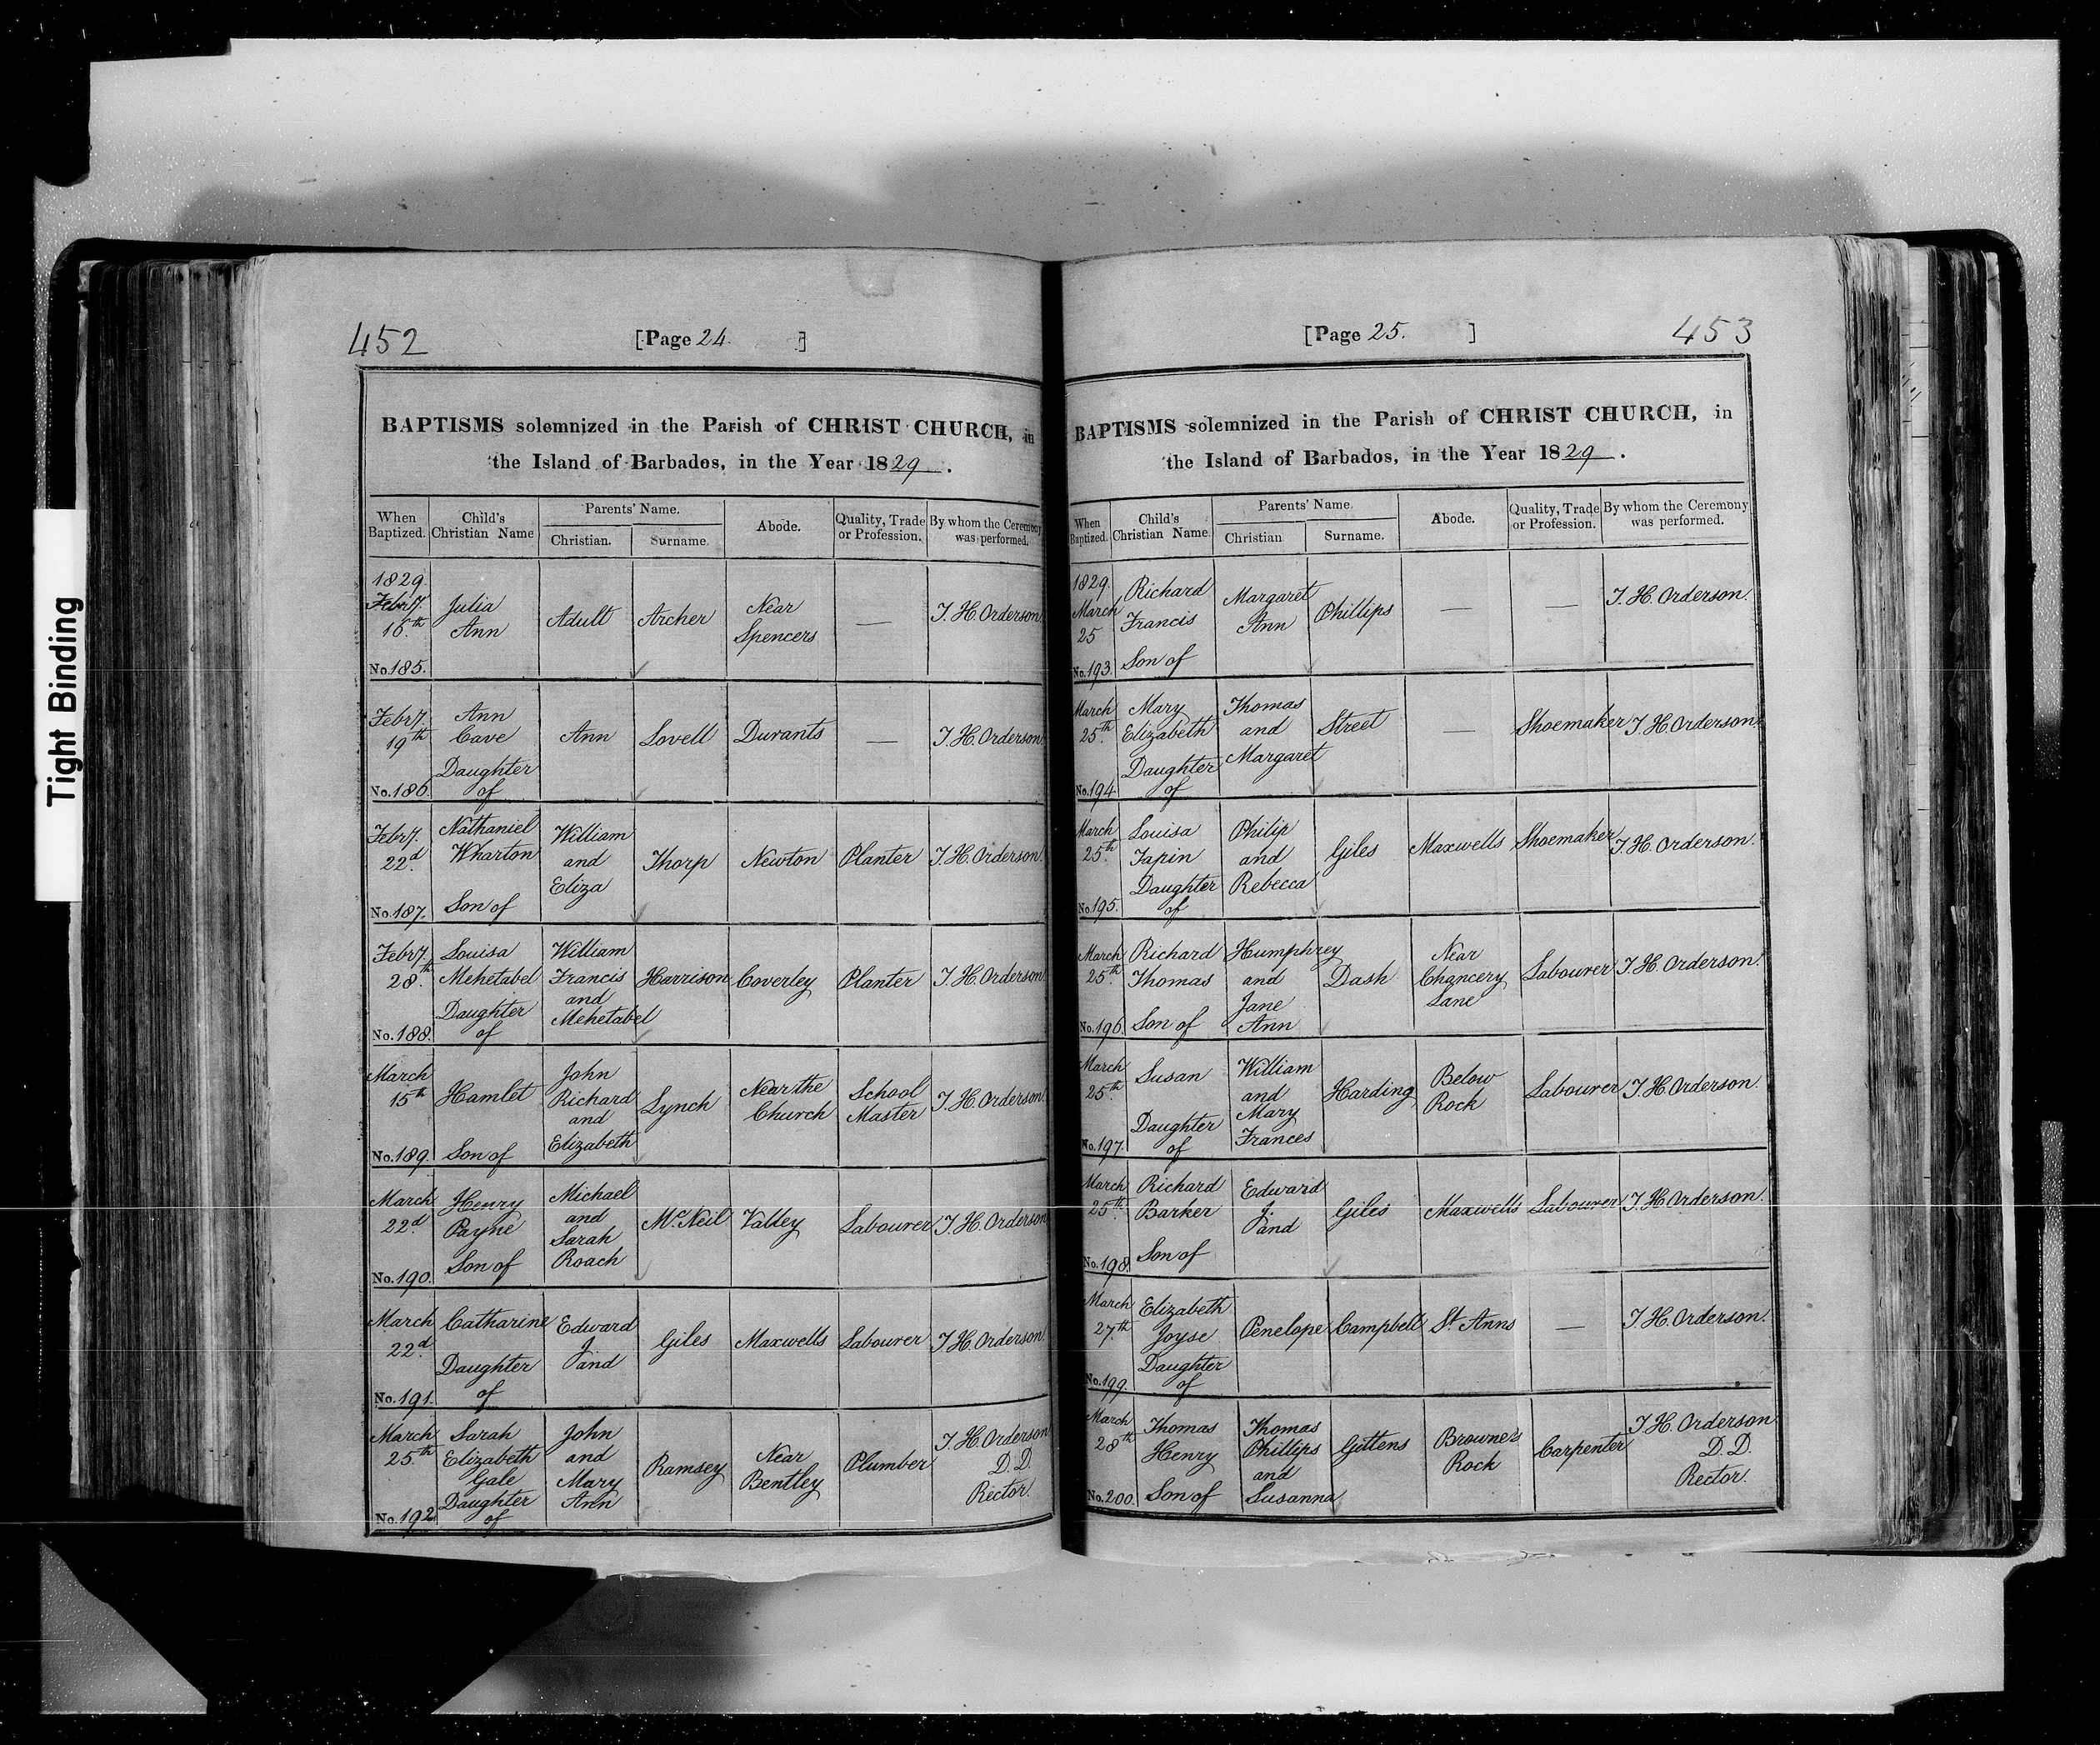 Tight Binding
452
[Page 24. ]
BAPTISMS solemnized in the Parish of CHRIST CHURCH, in
the Island of Barbados, in the Year 1829.
When Baptized. Child's Christian Name Parents' Name. Christian. Surname. Abode. Quality, Trade or Profession. By whom the Ceremony was performed.
1829. Febry. 16th No. 185. Julia Ann Adult Archer Near Spencers — J. H. Orderson
Febry. 19th No. 186. Ann Cave Daughter of Ann Lovell Durants — J. H. Orderson
Febry. 22d No. 187. Nathaniel Wharton Son of William and Eliza Thorp Newton Planter J. H. Orderson.
Febry. 28th No. 188. Louisa Mehetabel Daughter of William Francis and Mehetabel Harrison Coverley Planter J. H. Orderson
March 15th No. 189. Hamlet Son of John Richard and Elizabeth Lynch Near the Church School Master J. H. Orderson
March 22d No. 190. Henry Payne Son of Michael and Sarah Roach Mc Neil Valley Labourer J. H. Orderson
March 22d No. 191. Catharine Daughter of Edward J. and Giles Maxwells Labourer J. H. Orderson
March 25th No. 192. Sarah Elizabeth Gale Daughter of John and Mary Ann Ramsey Near Bentley Plumber J. H. Orderson D. D. Rector.
[Page 25. ]
453
BAPTISMS solemnized in the Parish of CHRIST CHURCH, in
the Island of Barbados, in the Year 1829.
When Baptized. Child's Christian Name. Parents' Name. Christian Surname. Abode. Quality, Trade or Profession. By whom the Ceremony was performed.
1829. March 25 No. 193. Richard Francis Son of Margaret Ann Phillips — — J. H. Orderson.
March 25th No. 194. Mary Elizabeth Daughter of Thomas and Margaret Street — Shoemaker J. H. Orderson
March 25th No. 195. Louisa Daughter of Philip and Rebecca Giles Maxwells Shoemaker J. H. Orderson.
March 25th No. 196. Richard Thomas Son of Humphrey and Jane Ann Dash Near Chancery Lane Labourer J. H. Orderson.
March 25th No. 197. Susan Daughter of William and Mary Frances Harding Below Rock Labourer J. H. Orderson.
March 25th No. 198. Richard Barker Son of Edward J. and Giles Maxwells Labourer J. H. Orderson.
March 27th No. 199. Elizabeth Joyse Daughter of Penelope Campbell St. Anns — J. H. Orderson.
March 28th No. 200. Thomas Henry Son of Thomas Phillips and Susanna Gittens Brownes Rock Carpenter J. H. Orderson D. D. Rector.